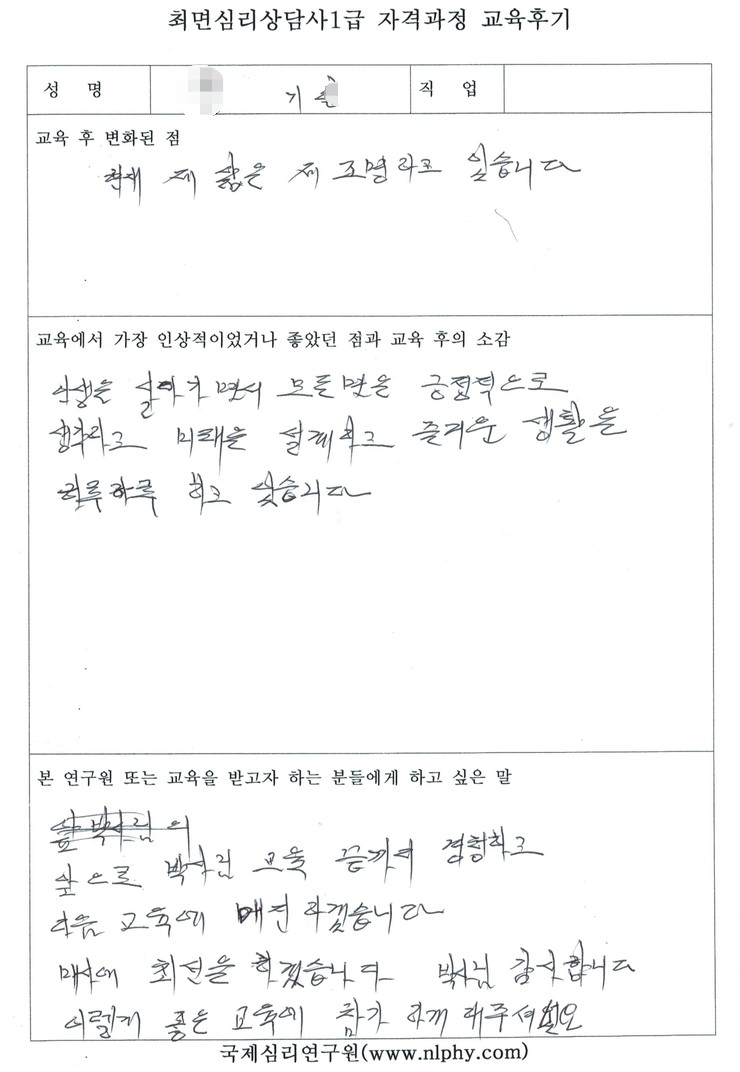 최면심리상담사1급 자격과정 교육후기
성 명 기 직 업
교육 후 변화된 점
현재 제 삶을 제 조명하고 있습니다
교육에서 가장 인상적이었거나 좋았던 점과 교육 후의 소감
인생을 살아가면서 모든면은 긍정적으로
생각하고 미래을 설계하고 즐거운 생활을
하루하루 하고 있습니다
본 연구원 또는 교육을 받고자 하는 분들에게 하고 싶은 말
앞으로 박사님 교육 끝까지 경험하고
다음 교육에 매진 하겠습니다
매사에 최선을 하겠습니다 박사님 감사합니다
이렇게 좋은 교육에 참가 하게 해주셔
국제심리연구원(www.nlphy.com)